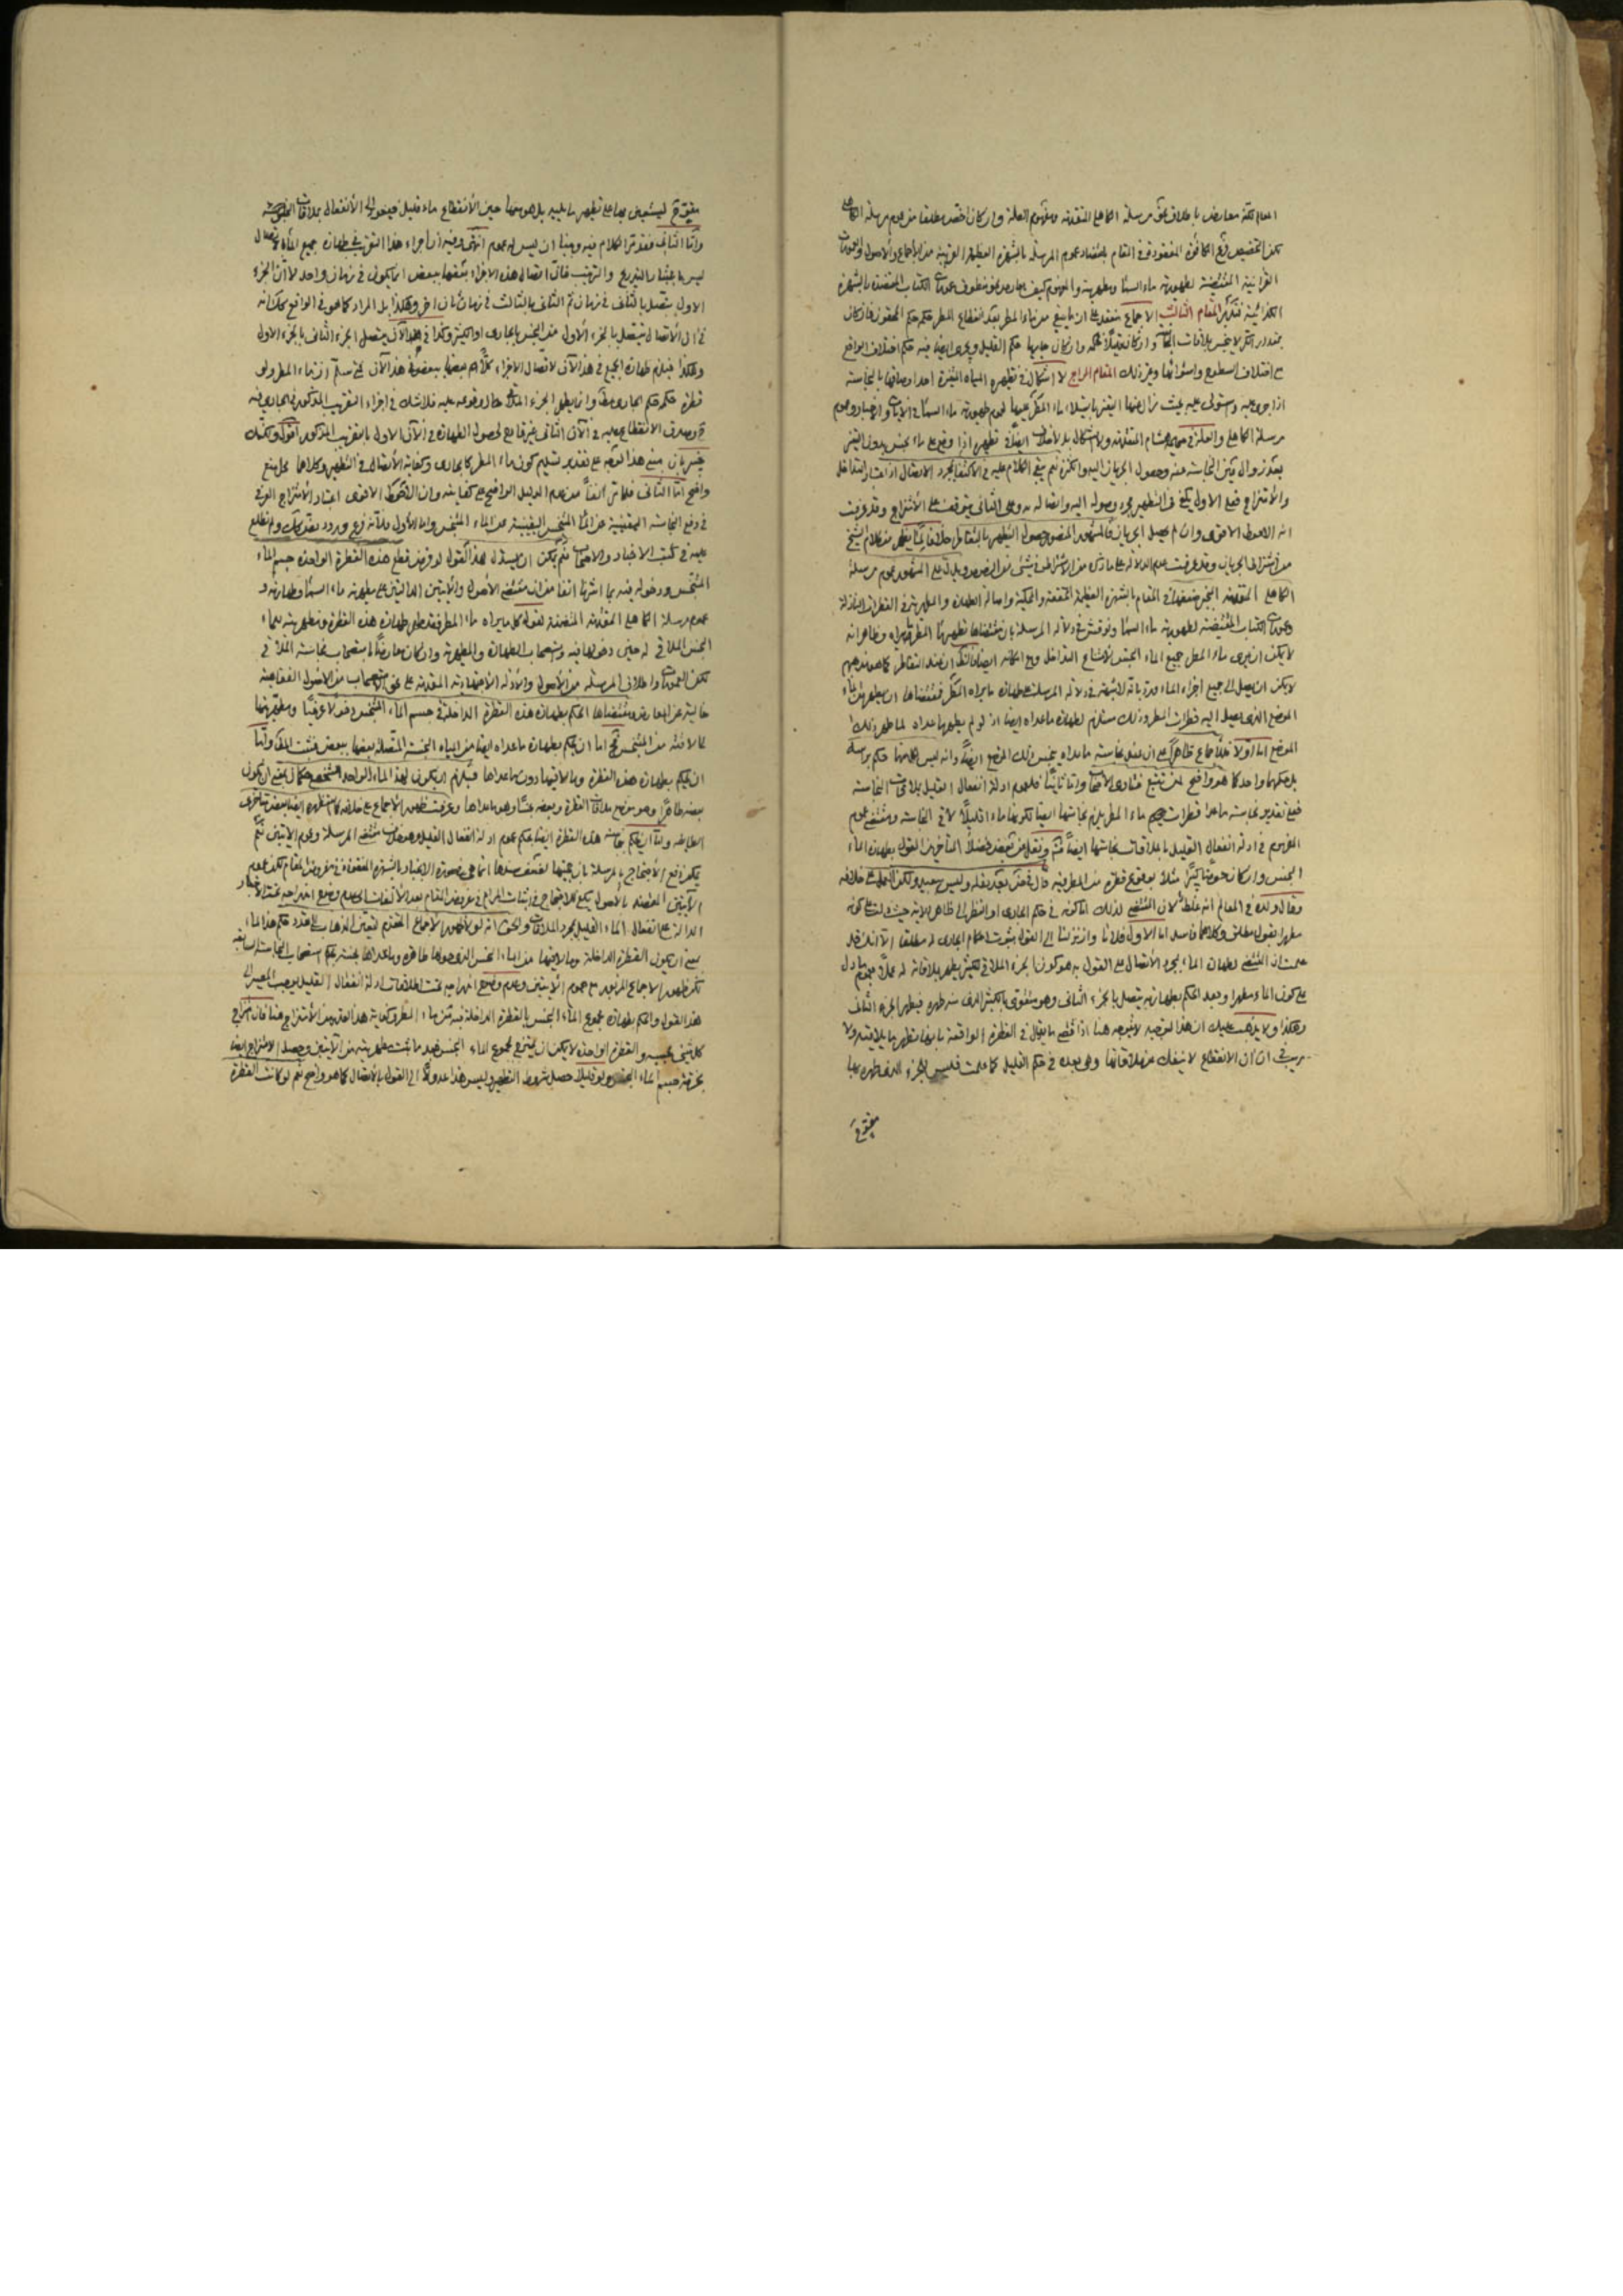 العام لكنه معارض باطلاق مرسلة الكاهلي المتقدمة وبعموم العلة وان كان اخص مطلقا من عموم مرسلة الكاهلي
لكن التخصيص فرع المكافؤة المفقودة في المقام باعتضاد عموم المرسلة بالشهرة العظيمة القريبة من الاجماع والاصول والعمومات
القرآنية المقتضية لطهورية ماء السماء ومطهريته والمفهوم كيف يعارض عموم الكتاب المعتضدة بالشهرة
فتدبر المقام الثالث الاجماع منعقد على ان ما بقي من ماء المطر بعد انقطاع المطر حكمه حكم المحقون فان كان
بمقدار الكر لا ينجس بملاقات النجاسة وان كان قليلا حكم القليل ويجري ايضا فيه حكم اختلاف
اختلاف السطوح واستوائها وغير ذلك المقام الرابع لا اشكال في تطهيره المياه المتغيرة احد اوصافها بالنجاسة
اذا جرى عليه واستولى عليه بحيث زال عنها التغير لعموم طهورية ماء السماء في الآيات والاخبار وعموم
مرسلة الكاهلي والعلة في المتقدمة ولا اشكال بل لا خلاف ايضا في تطهيره اذا وقع على ماء نجس بدون التغير
بعد زوال عين النجاسة عنه وحصول الجريان اليه والكثرة نعم بقي الكلام عليه في الاكتفاء بمجرد الاتصال او اعتبار التداخل
والامتزاج فعلى الاول يكفي في التطهير مجرد وصوله اليه واتصاله به وعلى الثاني يتوقف على الامتزاج وقد عرفت
انه الاحوط الاقوى وان لم يحصل الجريان فالمشهور المنصور حصول التطهير بالتقاطر خلافا لما يظهر من كلام الشيخ
من اشتراط الجريان وقد عرفت عدم الدلالة على ما ذكره من الاشتراط في شيء من النصوص ويدل على المشهور عموم مرسلة
الكاهلي المتقدمة المنجبر ضعفها في المقام بالشهرة العظيمة المحققة والمحكية واصالة الطهارة والمطهرية في القطرات النازلة
وعمومات الكتاب المقتضية لطهورية ماء السماء ونوقش في دلالة المرسلة بان مقتضاها تطهير ماء المطر ما يراه وظاهر انه
لا يمكن ان يرى ماء المطر جميع الماء النجس لامتناع التداخل
لا يمكن ان يصل الى جميع اجزاء الماء ورد بانه لا شبهة في دلالة المرسلة على طهارة ما يراه المطر فمقتضاها ان يطهر من الماء
الموضع الذي يصل اليه قطرات المطر وذلك مستلزم لطهارة ما عداه ايضا اذ لو لم يطهر ما عداه لما طهر ذلك
الموضع اما اولا فللاجماع ظاهرا على ان بقاء نجاسة ما عداه ينجس ذلك الموضع ايضا وانه ليس لكل منها حكم برأسه
بل حكمها واحد كما هو واضح لمن تتبع فتاوى الاصحاب واما ثانيا فلعموم ادلة انفعال القليل بملاقات النجاسة
فمع تقدير نجاسة ما عدا قطرات ماء المطر يلزم نجاستها ايضا لكونها ماء قليلا لاقى النجاسة ومقتضى عموم
المفهوم في ادلة انفعال القليل بالملاقات نجاستها ايضا ثم ونقل عن بعض فضلاء المتأخرين القول بطهارة الماء
النجس وان كان حوضا كبيرا مثلا بوقوع قطرة من المطر فيه قال في بعد نقله وليس ببعيد ولكن العمل على خلافه
وقال ولده في المعالم انه غلط لان المقتضي لذلك اما كونه في حكم الجاري او النظر الى ظاهر الآية حيث دلت على كونه
مطهرا بقول مطلق وكلاهما فاسد اما الاول فلانا وان نزلنا الى القول بثبوت احكام الجاري له مطلقا الا انك قد
علمت ان المقتضي لطهارة الماء بمجرد الاتصال على القول به هو كون الجزء الملاقي للكثير يطهر بملاقاته له عملا بعموم ما دل
على كون الماء مطهرا وبعد الحكم بطهارته يتصل بالجزء الثاني وهو متقوى بالكثير الذي منه طهره فيطهر الجزء الثاني
وهكذا ولا يذهب عليك ان هذا التوجيه لا يتوجه هنا اذ اقصى ما يقال في القطرة الواقعة بانها تطهر ما يلاقيه ولا
ريب في ان آن الانقطاع لا ينفك عن ملاقاتها وهي بعده في حكم القليل كما علمت فليس للجزء الذي طهر بها
مقوى ح
مقوى ح ليستعين بها على تطهير ما يليه بل هو معها حين الانقطاع ماء قليل فيعود الى الانفعال بملاقات النجاسة
واما الثاني فقد مر الكلام فيه وبينا ان ليس له عموم انتهى وفيه ان اجراء هذا التقريب في طهارة جميع الماء
ليس باعتبار التدريج والترتيب فان اتصال هذه الاجزاء بعضها ببعض انما يكون في زمان واحد لا ان الجزء
الاول يتصل بالثاني في زمان ثم الثاني بالثالث في زمان ثان اخر وهكذا بل المراد كما هو في الواقع
في آن الاتصال يتصل الجزء الاول من النجس بالجاري او الكثير وكذا في هذا الآن يتصل الجزء الثاني بالجزء الاول
وهكذا فيلزم طهارة الجميع في هذا الآن لاتصال الاجزاء كلا بعضها ببعض في هذا الآن فمتى سلم ان ماء المطر ولو
قطرة حكمه حكم الجاري مطلقا وانه يطهر الجزء الملاقي حال وقوعه عليه فلا شك في اجراء التقريب المذكور في الجاري فيه
ح وصدق الانقطاع عليه في الآن الثاني غير قادح لحصول الطهارة في الآن الاول بالتقريب المذكور اقول ولكنك
خبير بان مبنى هذا التوجيه على تقدير تسليم كون ماء المطر كالجاري وكفاية الاتصال في التطهير وكلاهما محل منع
واضح اما الثاني فلما مر آنفا من عدم الدليل الواضح على كفايته وان الاحوط الاقوى اعتبار الامتزاج
في رفع النجاسة اليقينية عن الماء المتنجس واما الاول فلانه فرع ورود نص بذلك ولم نطلع
عليه في كتب الاخبار والاصحاب نعم يمكن ان يستدل لهذا القول لو فرض قطع هذه القطرة الواحدة جسم الماء
المتنجس ودخوله فيه بما اشرنا آنفا من ان مقتضى الاصول والآيتين الدالتين على مطهرية ماء السماء وطهارته و
عموم مرسلة الكاهلي المتقدمة المتضمنة لقوله كل ما يراه ماء المطر فقد طهر طهارة هذه القطرة ومطهريته للماء
النجس الملاقي له حين دخولها فيه واستصحاب الطهارة والمطهرية وان كان معارضا باستصحاب نجاسة الملاقي
لكن العمومات واطلاق المرسلة من الاصول والادلة الاجتهادية المقدمة على نحو الاستصحاب من الاصول الفقاهية
خالية عن المعارض ومقتضاها الحكم بطهارة هذه القطرة الداخلة في جسم الماء المتنجس دخولا عرفيا ومطهريتها
لما لاقته من المتنجس فح اما ان يحكم بطهارة ما عداه ايضا من المياه النجسة المتصلة بعضها ببعض فثبت المدعى واما
ان يحكم بطهارة هذه القطرة وما لاقيها دون ما عداها فيلزم ان يكون لهذا الماء الواحد الشخصي حكمان بمعنى ان يكون
بعضه طاهرا وهو موضع ملاقات القطرة وبعضه نجسا وهو ما عداها وعرفت ظهور الاجماع على خلافه
واما ان يحكم بنجاسة هذه القطرة ايضا بحكم عموم ادلة انفعال القليل وهو خلاف مقتضى المرسلة وعموم الآيتين نعم
يمكن دفع الاحتجاج بالمرسلة بان حجيتها لضعف سندها انما هي بضرورة الانجبار بالشهرة المفقودة في مفروض المقام لكن عموم
الآيتين المعتضد بالاصول يكفي للاحتجاج في اثبات المرام في مفروض المقام بعد الالتفات الى عدم وضوح اندراجه تحت الاخبار
الدالة على انفعال الماء القليل بمجرد الملاقات والحق انه لولا ظهور الاجماع المتقدم لتعين الذهاب الى تعدد حكم هذا الماء
بمعنى ان يكون القطرة الداخلة وما لاقيها من الماء النجس الذي حولها طاهرة وما عداها نجسة بحكم استصحاب النجاسة السابقة
لكن ظهور الاجماع المزبور مع عموم الآيتين وعدم وضوح اندراجه تحت اطلاقات ادلة انفعال القليل يوجب المصير الى
هذا القول والحكم بطهارة مجموع الماء النجس بالقطرة الداخلة فيه من ماء المطر وكفاية هذا القدر من الامتزاج هنا فان امتزاج
كل شيء بحسبه والقطرة الواحدة لا يمكن ان يمتزج بمجموع الماء النجس فبعد ما ثبت مطهريته من الآيتين وحصل الامتزاج ايضا
بخرقه جسم الماء النجس ولو قليلا حصل شروط التطهير وليس هذا عدولا الى القول بالاتصال كما هو واضح نعم لو كانت القطرة